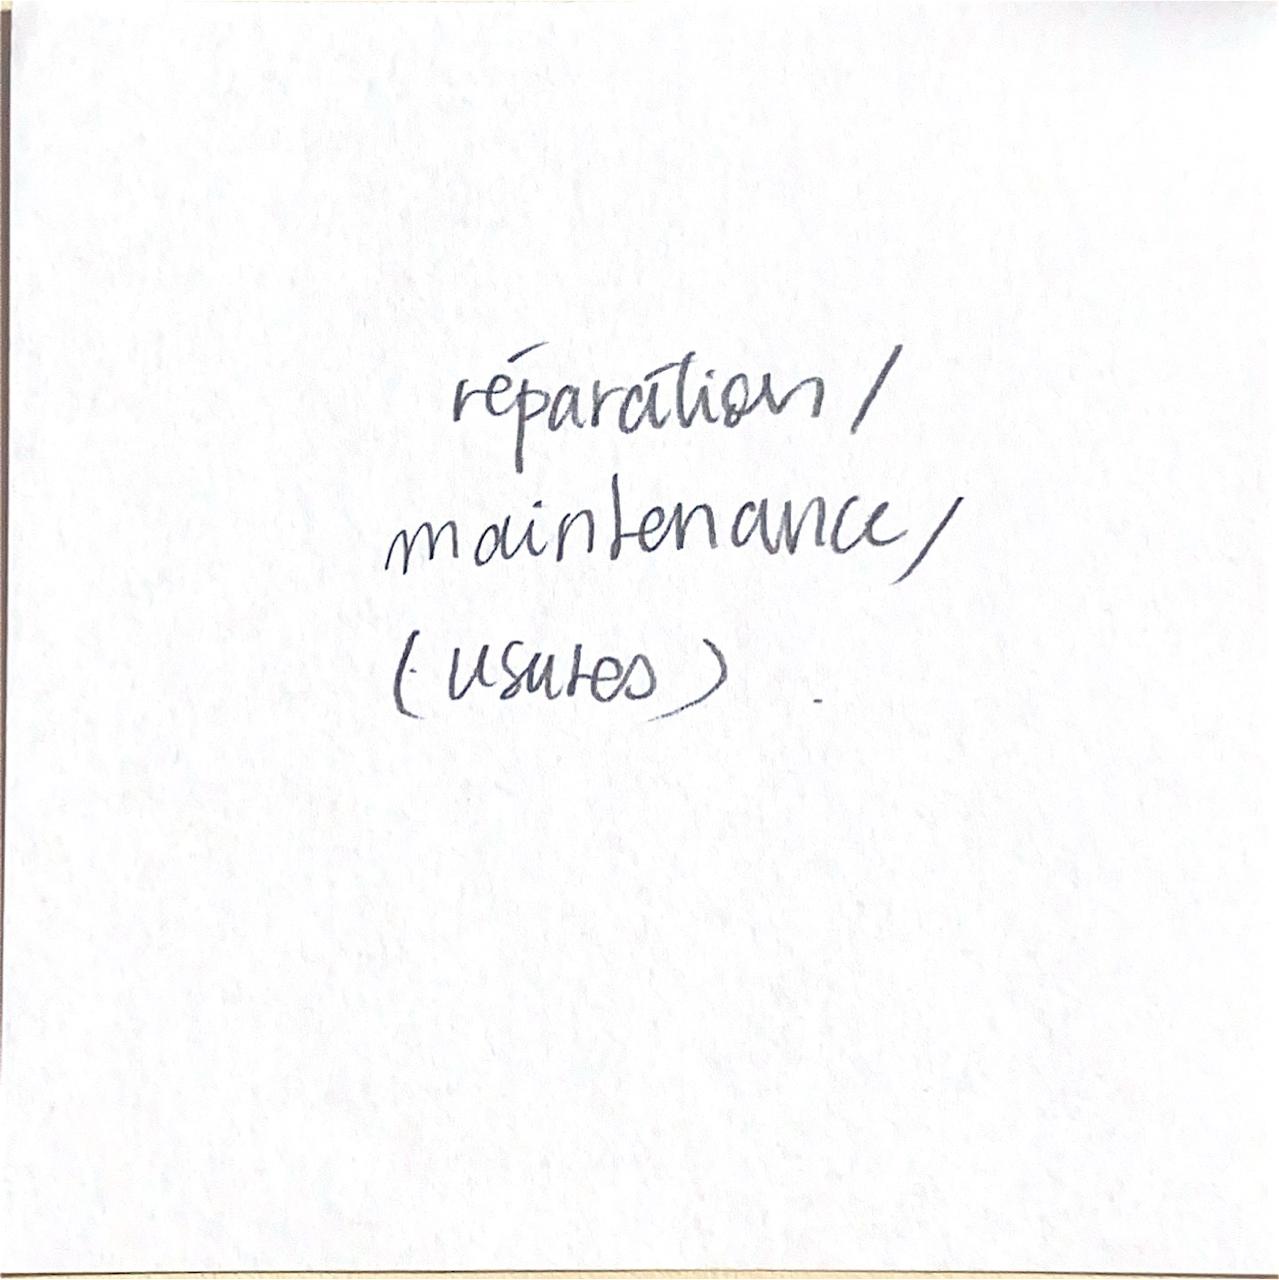 réparation /
maintenance /
(usures)